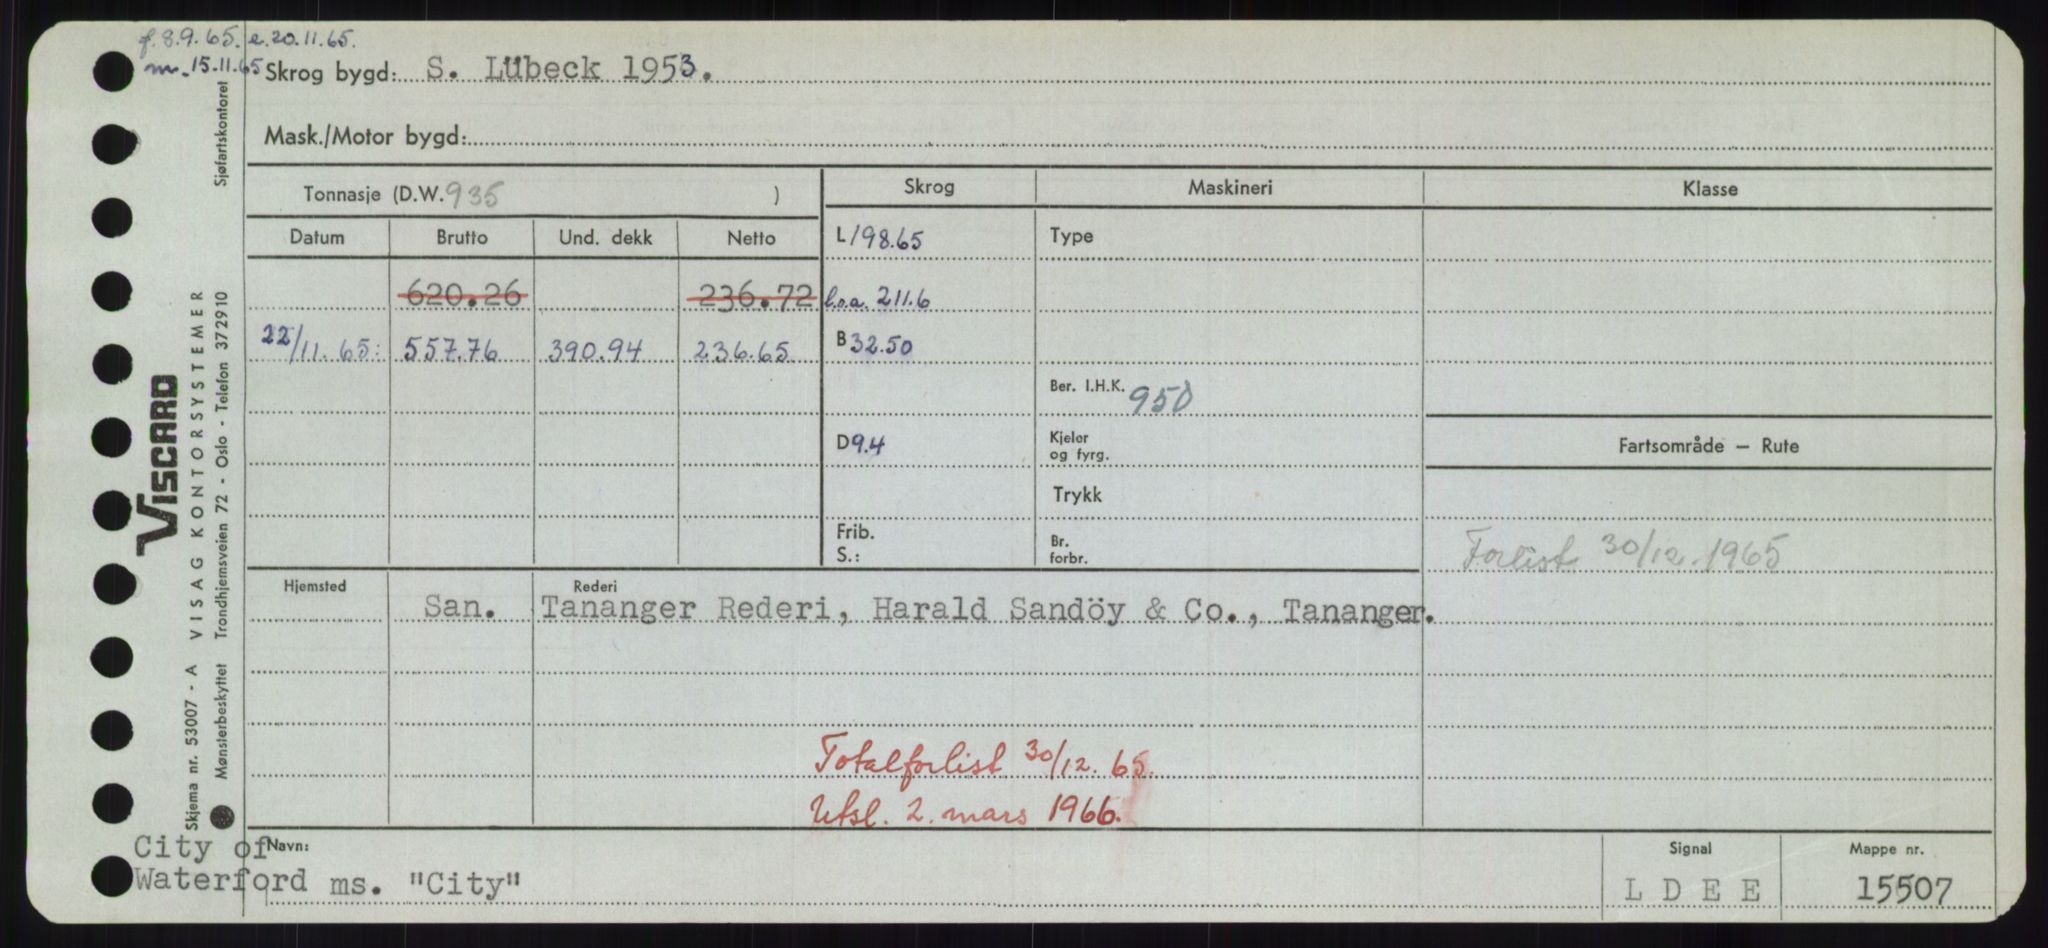 f. 8.9.65. e. 20.11.65.
m. 15.11.65 Skrog bygd: S. Lübeck 1953.
Mask./Motor bygd:
Tonnasje (D.W. 935 )
Skrog Maskineri Klasse
Datum Brutto Und. dekk Netto
L 198.65 Type
620.26 236.72 l.o.a. 211.6
22/11.65: 557.76 390.94 236.65 B 32.50
Ber. I.H.K. 950
D 9.4 Kjeler og fyrg.
Fartsområde — Rute
Trykk
Frib.
S.:
Br. forbr.
Forlist 30/12.1965
Hjemsted Rederi
San. Tananger Rederi, Harald Sandöy & Co., Tananger.
Totalforlist 30/12. 65.
Utsl. 2. mars 1966.
City of Navn:
Waterford ms. "City"
Signal
L D E E
Mappe nr.
15507
VISCARD
Skjema nr. 53007 - A VISAG KONTORSYSTEMER
Mønsterbeskyttet Trondhjemsveien 72 - Oslo - Telefon 372910
Sjøfartskontoret